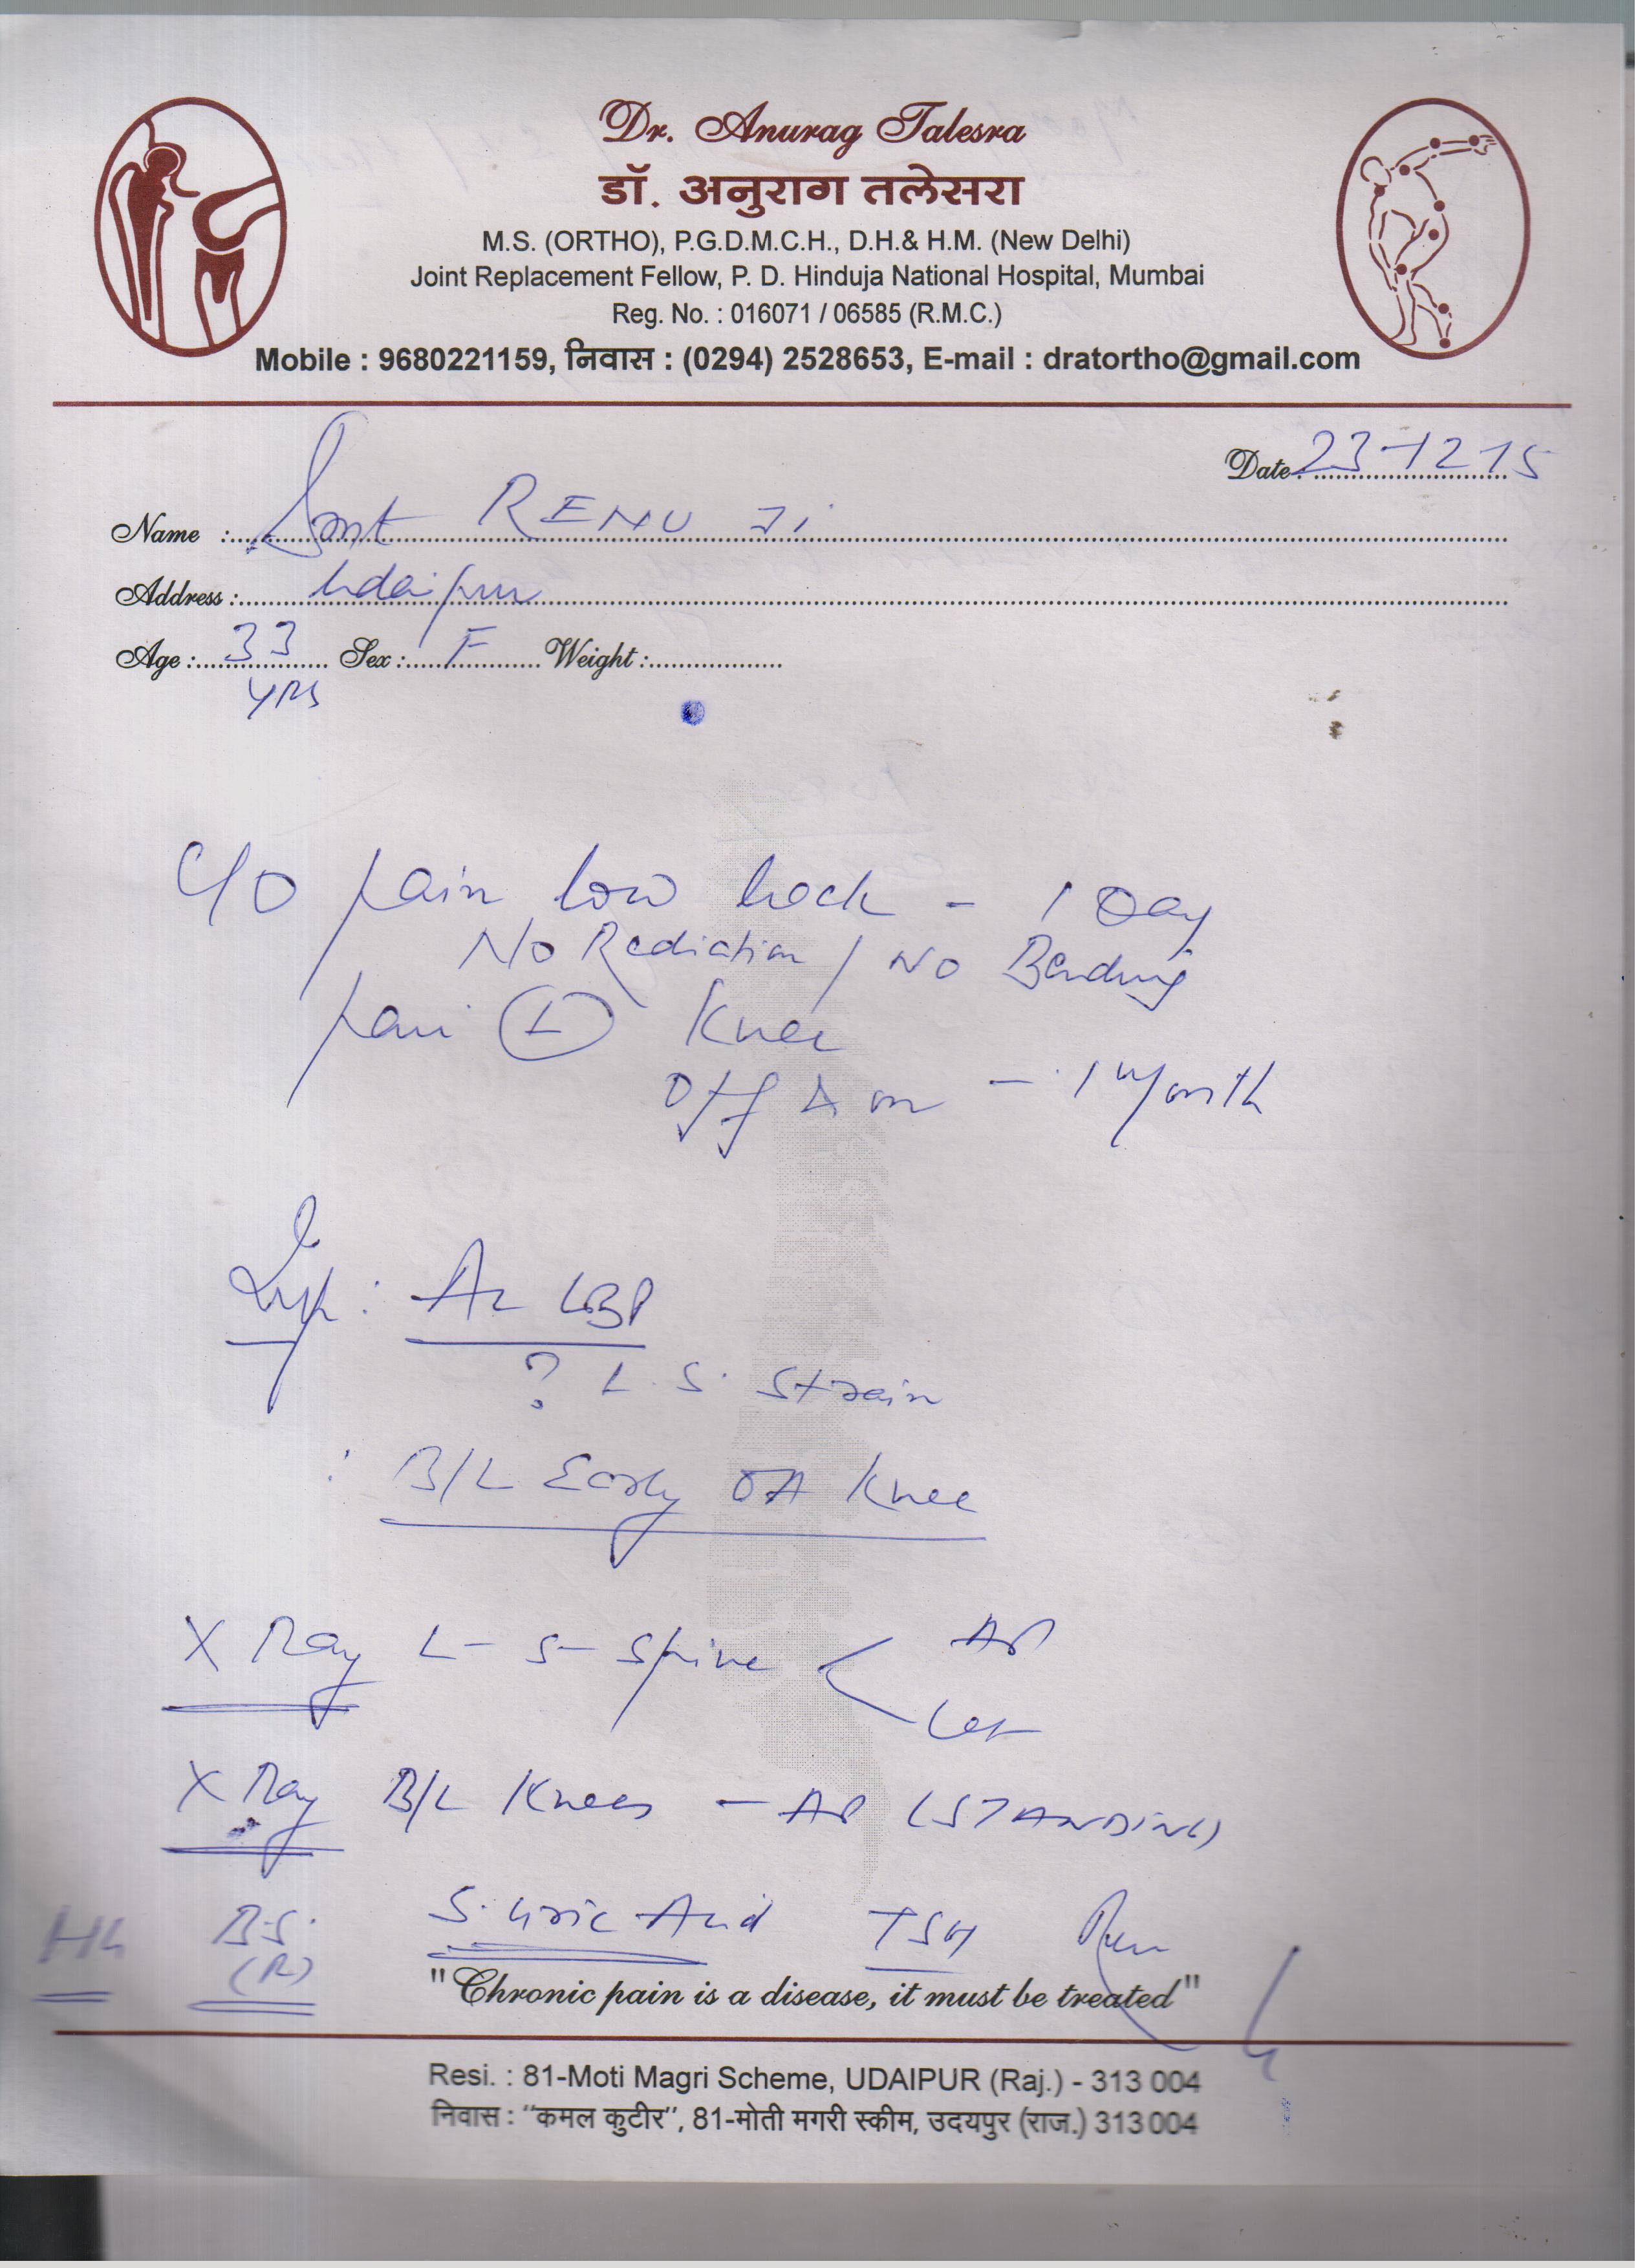 Dr. Anurag Talesra
डॉ. अनुराग तलेसरा
M.S. (ORTHO), P.G.D.M.C.H., D.H.& H.M. (New Delhi)
Joint Replacement Fellow, P. D. Hinduja National Hospital, Mumbai
Reg. No. : 016071 / 06585 (R.M.C.)
Mobile : 9680221159, निवास : (0294) 2528653, E-mail : dratortho@gmail.com
Date : 23-12-15
Name : Smt RENU Ji
Address : Udaipur
Age : 33 Sex : F Weight :
YRS
C/O pain low back - 1 Day
No Radiation / NO Bending
pain (L) Knee
Off & on - 1 Month
Imp : Ac LBP
? L.S. Strain
: B/L Early OA Knee
X Ray L-S-Spine < AP
Lat
X Ray B/L Knees - AP (STANDING)
Hb B.S. (R) S. Uric Acid TSH
"Chronic pain is a disease, it must be treated"
Resi. : 81-Moti Magri Scheme, UDAIPUR (Raj.) - 313 004
निवास : "कमल कुटीर", 81-मोती मगरी स्कीम, उदयपुर (राज.) 313 004